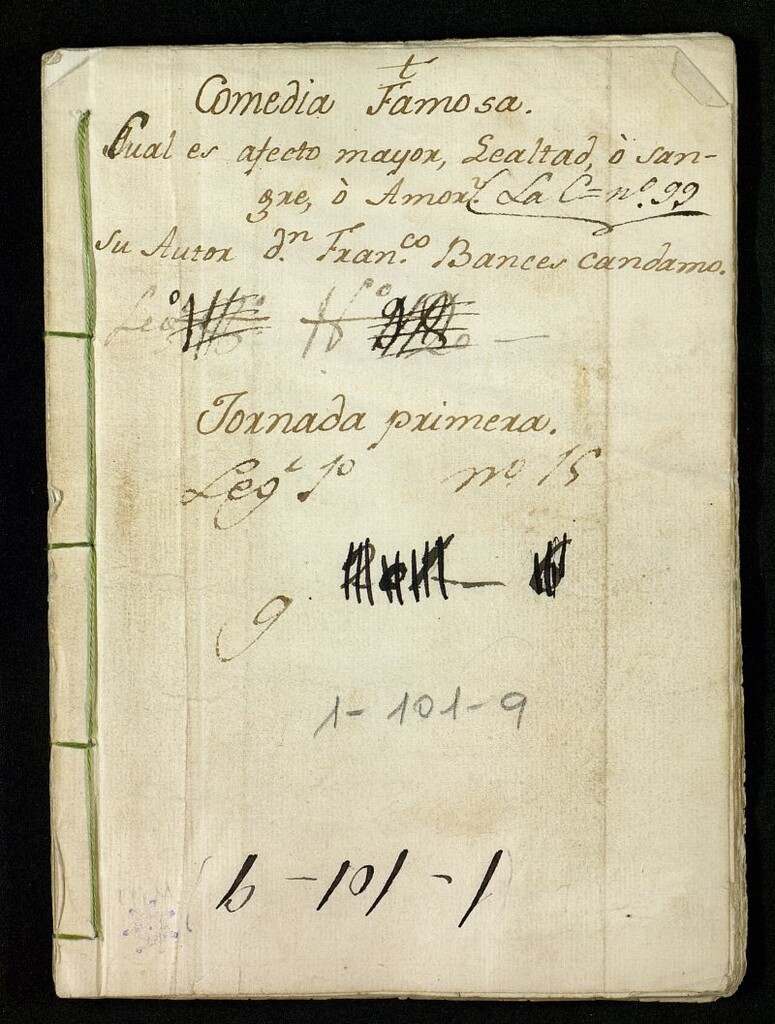 t
Comedia Famosa.
Qual es afecto mayor, Lealtad, ò san-
gre, ò Amor? La C= nº. 99
su Autor dn. Franco. Bances candamo.
Jornada primera.
Lego 1º nº 15
9
1-101-9
1-101-9